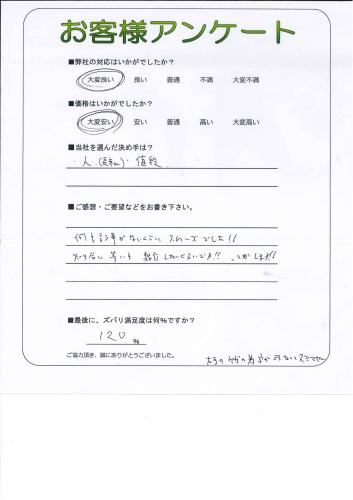 お客様アンケート
■弊社の対応はいかがでしたか?
大変良い 良い 普通 不満 大変不満
■価格はいかがでしたか?
大変安い 安い 普通 高い 大変高い
■当社を選んだ決め手は?
人 値段
■ご感想・ご要望などをお書き下さい。
何も言う事がないくらい スムーズでした!!
知り合い 紹介 したいくらいです!! します!!
■最後に、ズバリ満足度は何%ですか?
120 %
ご協力頂き、誠にありがとうございました。